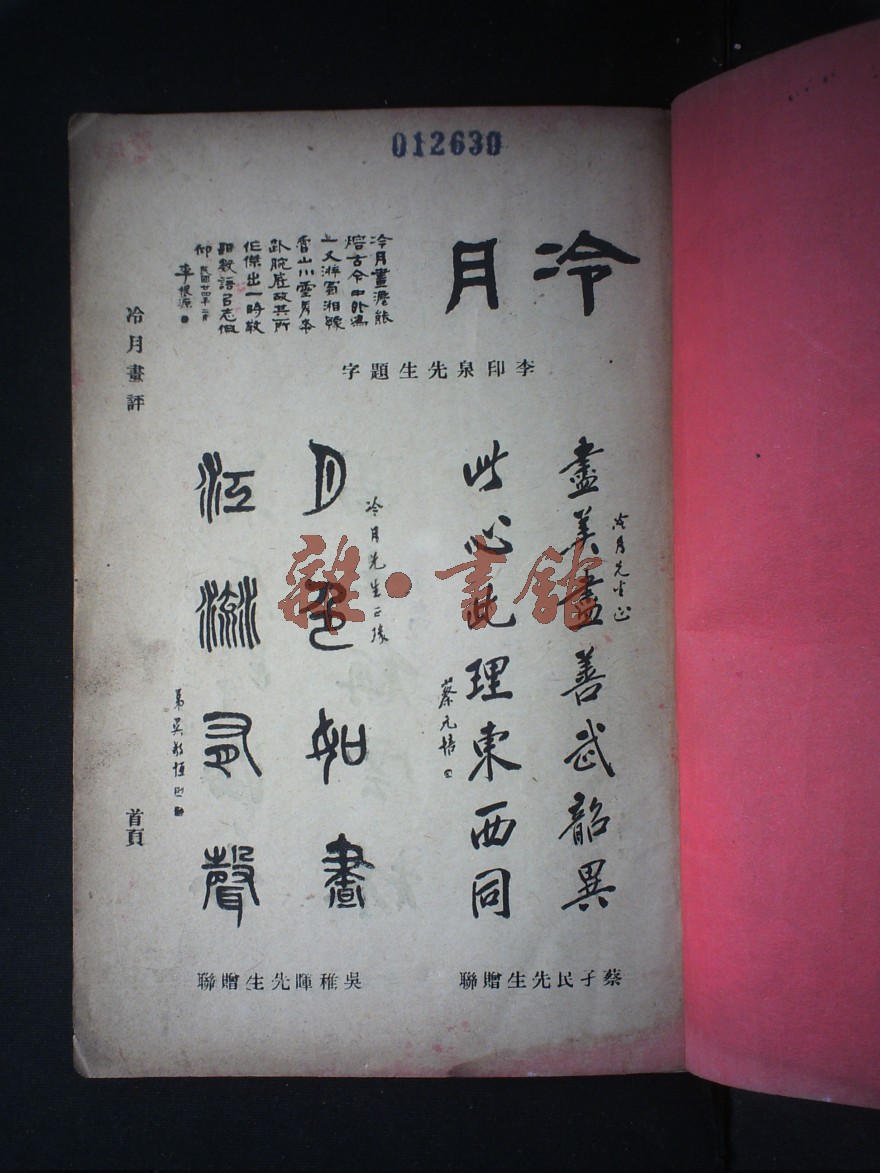 012630
冷月
冷月畫澹能
熔古今中外為
一又游
香山川靈
赴腕底故其所
作傑出一時敬
題數語以志佩
仰 民國廿四年二月
李根源
李印泉先生題字
冷月先生正
盡美盡善武韶異
此心此理東西同
蔡元培
蔡孑民先生贈聯
冷月先生正豪
月色如畫
江瀨有聲
弟吳敬恆
吳稚暉先生贈聯
冷月畫評
首頁
雜·書館